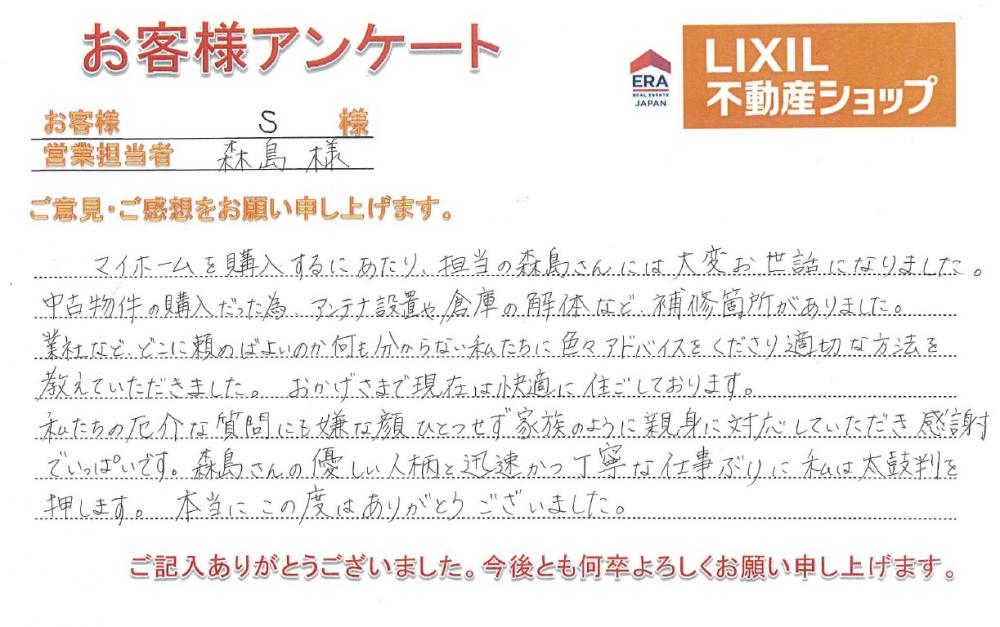 お客様アンケート
ERA
REAL ESTATE
JAPAN
LIXIL
不動産ショップ
お客様 S 様
営業担当者 森島 様
ご意見・ご感想をお願い申し上げます。
マイホームを購入するにあたり、担当の森島さんには大変お世話になりました。
中古物件の購入だった為、アンテナ設置や倉庫の解体など、補修箇所がありました。
業社など、どこに頼めばよいのか何も分からない私たちに色々アドバイスをくださり適切な方法を
教えていただきました。 おかげさまで現在は快適に住ごしております。
私たちの厄介な質問にも嫌な顔ひとつせず家族のように親身に対応していただき感謝
でいっぱいです。森島さんの優しい人柄と迅速かつ丁寧な仕事ぶりに私は太鼓判を
押します。 本当にこの度はありがとうございました。
ご記入ありがとうございました。今後とも何卒よろしくお願い申し上げます。